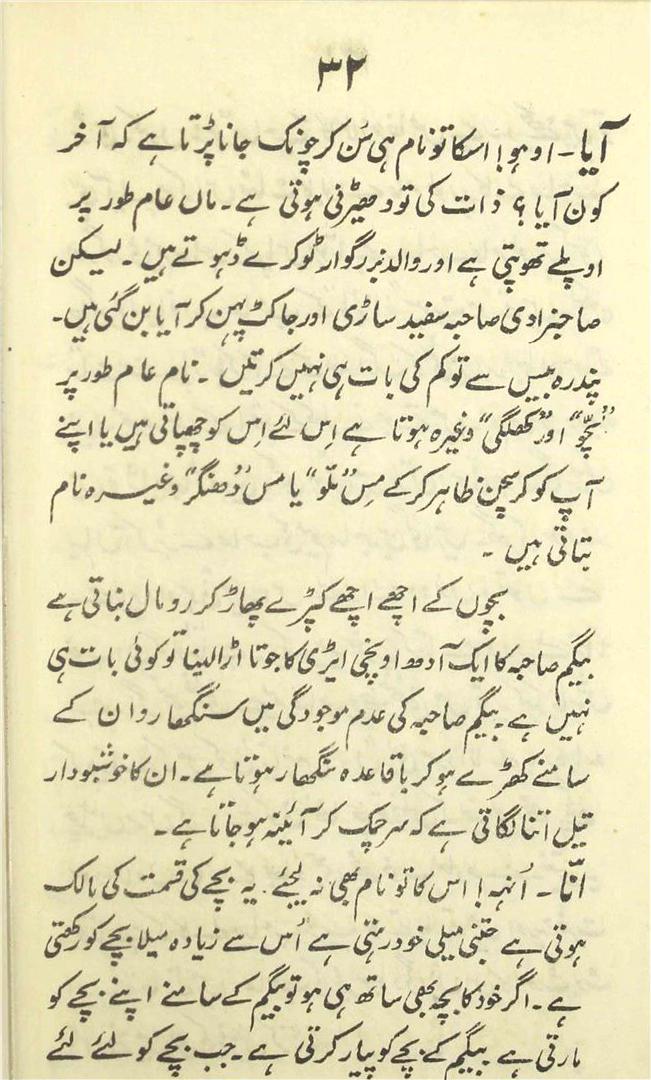 ۳۲
آیا۔ اوہو! اسکا تو نام ہی سُن کر چونک جانا پڑتا ہے کہ آخر
کون آیا؟ ذات کی تو دھیڑنی ہوتی ہے۔ ماں عام طور پر
اوپلے تھوپتی ہے اور والد بزرگوار ٹوکرے ڈہوتے ہیں۔ لیکن
صاحبزادی صاحبہ سفید ساڑی اور جاکٹ پہن کر آیا بن گئی ہیں۔
پندرہ بیس سے تو کم کی بات ہی نہیں کرتیں۔ نام عام طور پر
"پُچّو" اور "کھلگی" وغیرہ ہوتا ہے اِس لئے اِس کو چھپاتی ہیں یا اپنے
آپ کو کرسچن ظاہر کر کے مِس "للّو" یا مس "دُھنگر" وغیرہ نام
بتاتی ہیں۔
بچوں کے اچھے اچھے کپڑے پھاڑ کر رومال بناتی ہے
بیگم صاحبہ کا ایک آدھ اونچی ایڑی کا جوتا اڑا لینا تو کوئی بات ہی
نہیں ہے۔ بیگم صاحبہ کی عدم موجودگی میں سنگھاردان کے
سامنے کھڑے ہو کر باقاعدہ سنگھار ہوتا ہے۔ ان کا خوشبودار
تیل اتنا لگاتی ہے کہ سر چمک کر آئینہ ہو جاتا ہے۔
انّا۔ اُنہہ! اس کا تو نام بھی نہ لیجئے۔ یہ بچے کی قسمت کی مالک
ہوتی ہے جتنی میلی خود رہتی ہے اُس سے زیادہ میلا بچے کو رکھتی
ہے۔ اگر خود کا بچہ بھی ساتھ ہی ہو تو بیگم کے سامنے اپنے بچے کو
مارتی ہے بیگم کے بچے کو پیار کرتی ہے۔ جب بچے کو لئے لئے